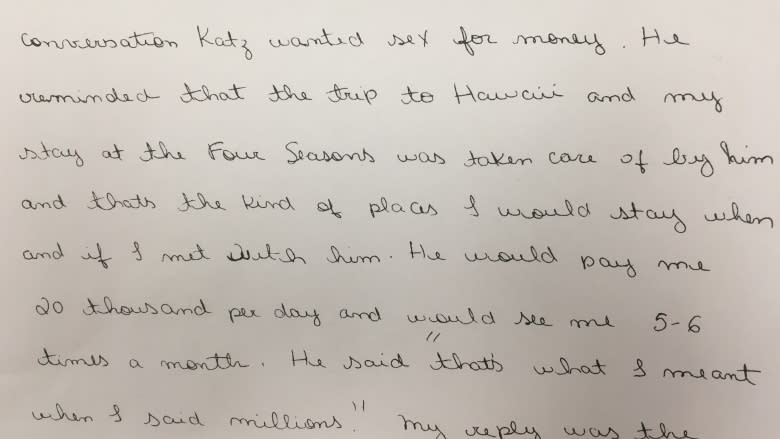 conversation Katz wanted sex for money. He
reminded that the trip to Hawaii and my
stay at the Four Seasons was taken care of by him
and thats the kind of places I would stay when
and if I met with him. He would pay me
20 thousand per day and would see me 5-6
times a month. He said "that's what I meant
when I said millions." My reply was the